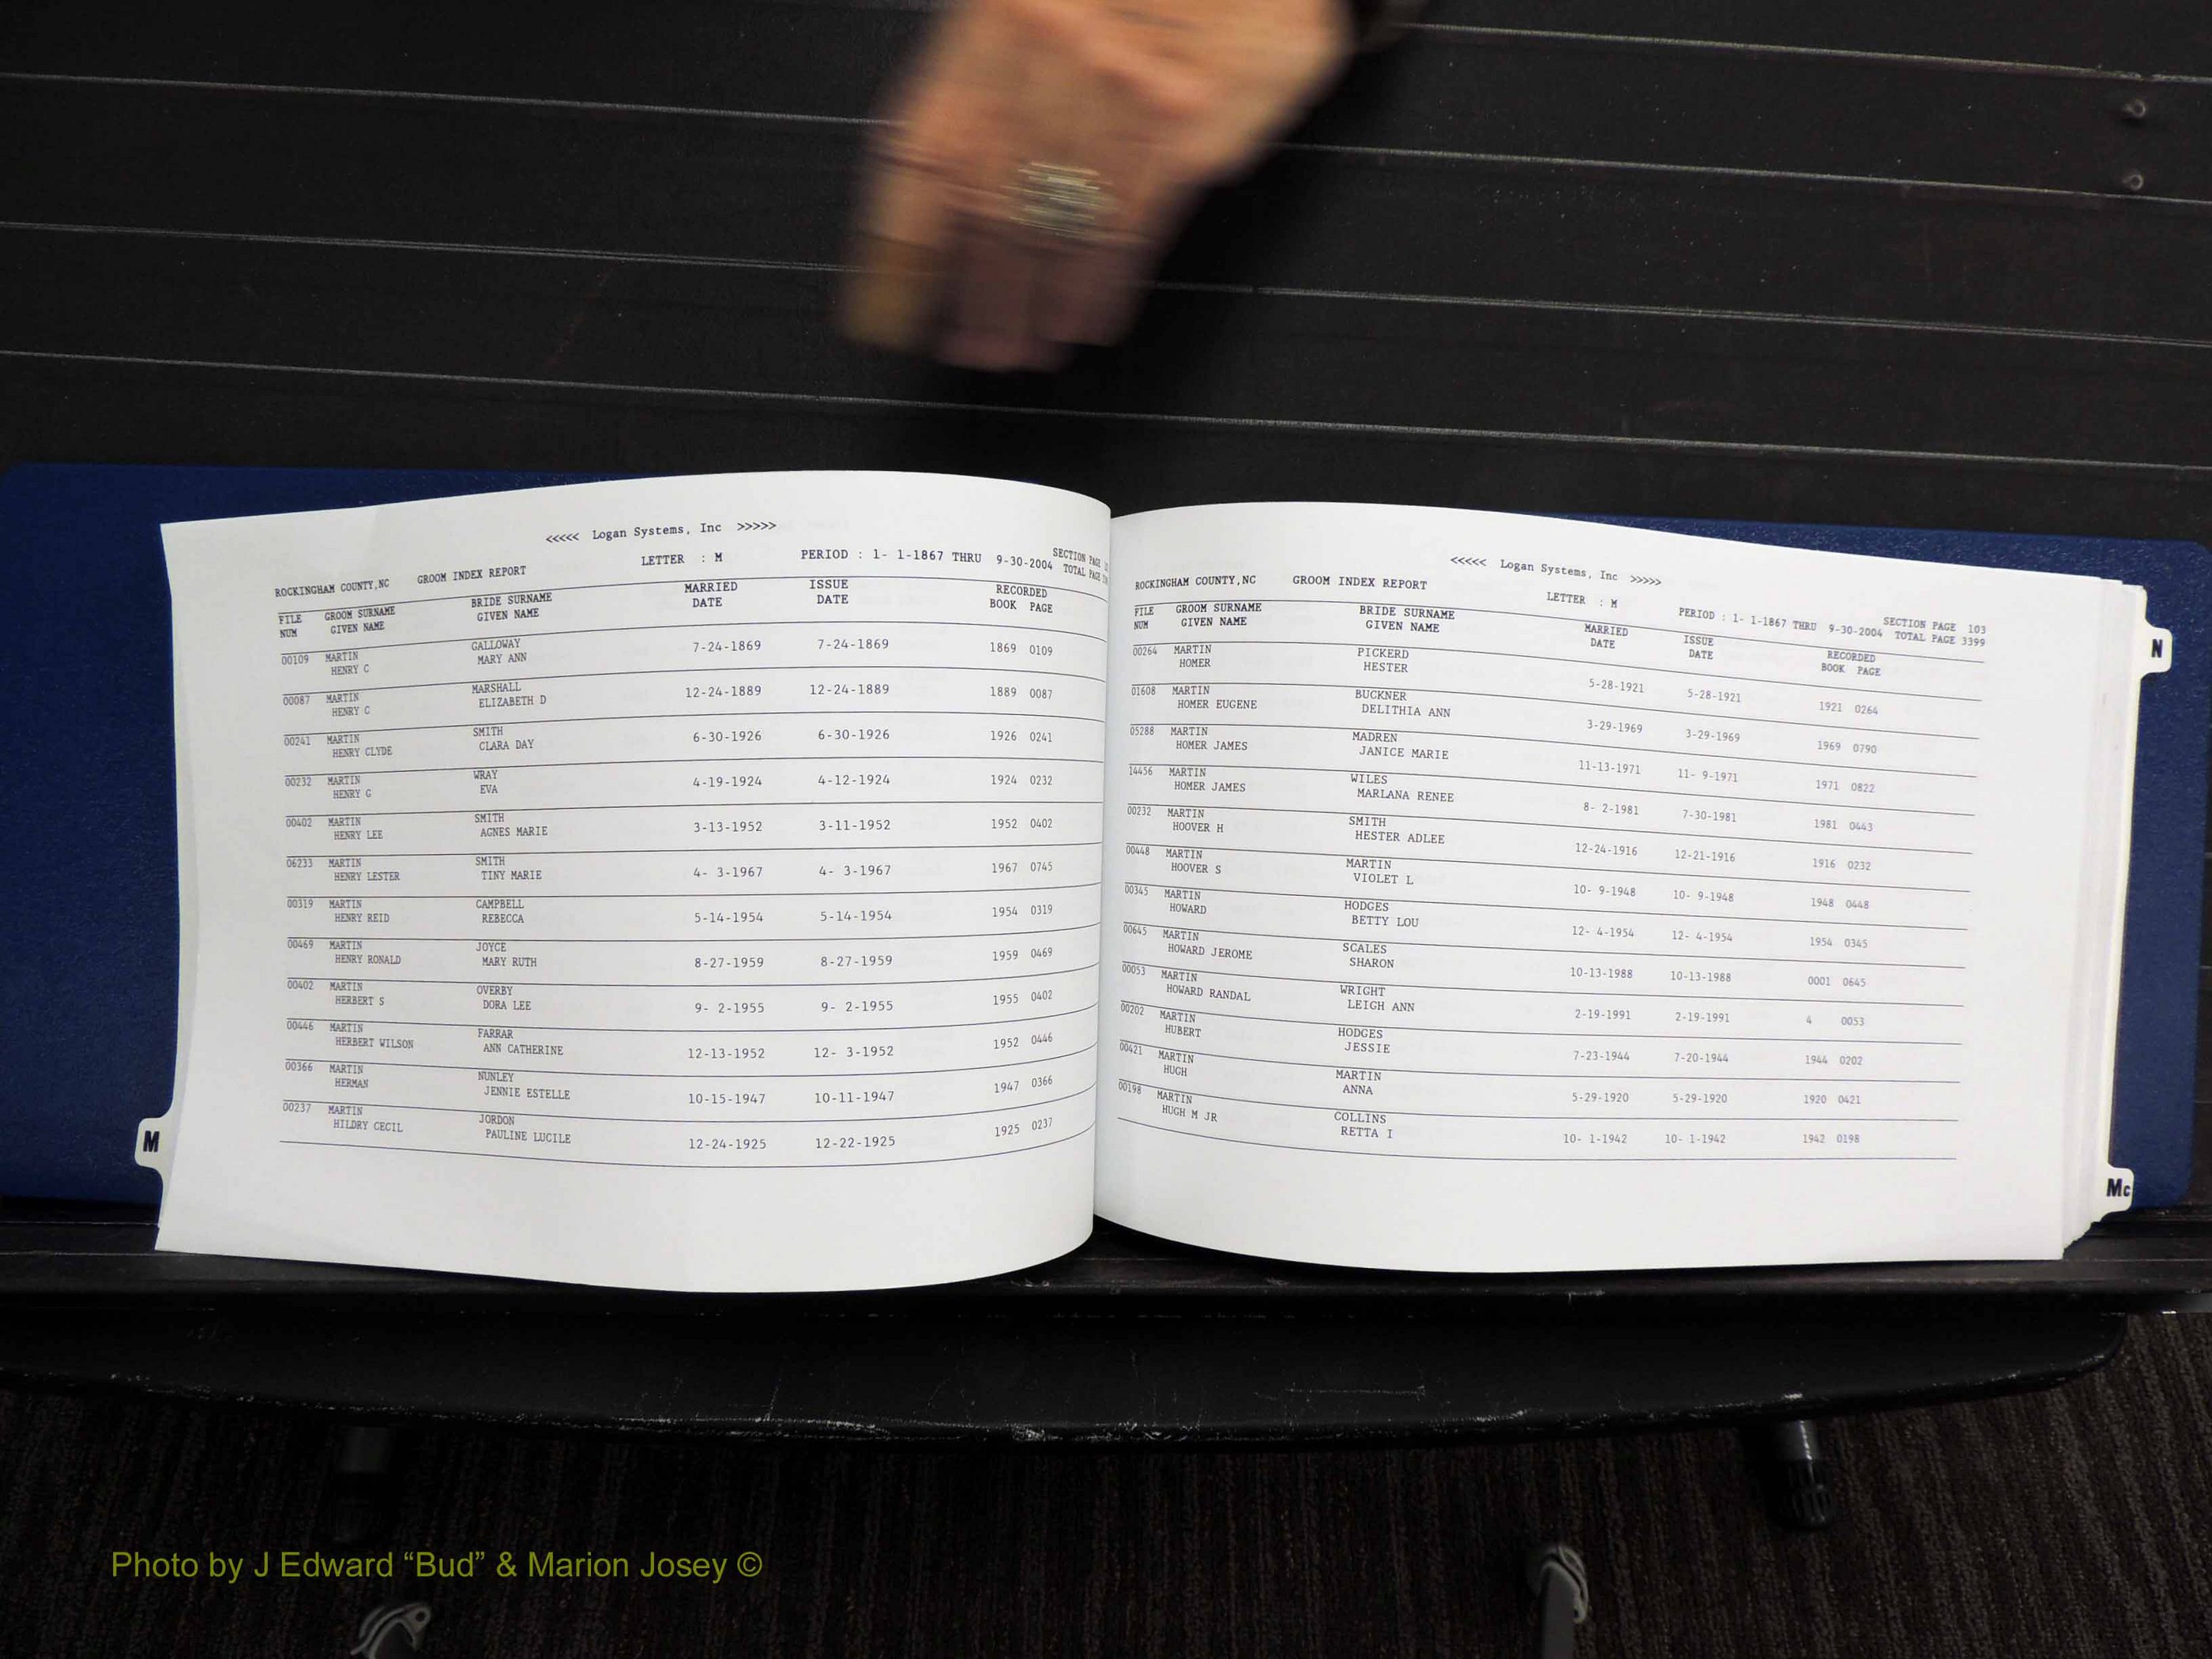 <<<<< Logan Systems, Inc >>>>>
ROCKINGHAM COUNTY,NC GROOM INDEX REPORT LETTER : M PERIOD : 1- 1-1867 THRU 9-30-2004 SECTION PAGE
TOTAL PAGE
FILE GROOM SURNAME BRIDE SURNAME MARRIED ISSUE RECORDED
NUM GIVEN NAME GIVEN NAME DATE DATE BOOK PAGE
00109 MARTIN GALLOWAY 7-24-1869 7-24-1869 1869 0109
HENRY C MARY ANN
00087 MARTIN MARSHALL 12-24-1889 12-24-1889 1889 0087
HENRY C ELIZABETH D
00241 MARTIN SMITH 6-30-1926 6-30-1926 1926 0241
HENRY CLYDE CLARA DAY
00232 MARTIN WRAY 4-19-1924 4-12-1924 1924 0232
HENRY G EVA
00402 MARTIN SMITH 3-13-1952 3-11-1952 1952 0402
HENRY LEE AGNES MARIE
06233 MARTIN SMITH 4- 3-1967 4- 3-1967 1967 0745
HENRY LESTER TINY MARIE
00319 MARTIN CAMPBELL 5-14-1954 5-14-1954 1954 0319
HENRY REID REBECCA
00469 MARTIN JOYCE 8-27-1959 8-27-1959 1959 0469
HENRY RONALD MARY RUTH
00402 MARTIN OVERBY 9- 2-1955 9- 2-1955 1955 0402
HERBERT S DORA LEE
00446 MARTIN FARRAR 12-13-1952 12- 3-1952 1952 0446
HERBERT WILSON ANN CATHERINE
00366 MARTIN NUNLEY 10-15-1947 10-11-1947 1947 0366
HERMAN JENNIE ESTELLE
00237 MARTIN JORDON 12-24-1925 12-22-1925 1925 0237
HILDRY CECIL PAULINE LUCILE
M
<<<<< Logan Systems, Inc >>>>>
ROCKINGHAM COUNTY,NC GROOM INDEX REPORT LETTER : M PERIOD : 1- 1-1867 THRU 9-30-2004 SECTION PAGE 103
TOTAL PAGE 3399
FILE GROOM SURNAME BRIDE SURNAME MARRIED ISSUE RECORDED
NUM GIVEN NAME GIVEN NAME DATE DATE BOOK PAGE
00264 MARTIN PICKERD 5-28-1921 5-28-1921 1921 0264
HOMER HESTER
01608 MARTIN BUCKNER 3-29-1969 3-29-1969 1969 0790
HOMER EUGENE DELITHIA ANN
05288 MARTIN MADREN 11-13-1971 11- 9-1971 1971 0822
HOMER JAMES JANICE MARIE
14456 MARTIN WILES 8- 2-1981 7-30-1981 1981 0443
HOMER JAMES MARLANA RENEE
00232 MARTIN SMITH 12-24-1916 12-21-1916 1916 0232
HOOVER H HESTER ADLEE
00448 MARTIN MARTIN 10- 9-1948 10- 9-1948 1948 0448
HOOVER S VIOLET L
00345 MARTIN HODGES 12- 4-1954 12- 4-1954 1954 0345
HOWARD BETTY LOU
00645 MARTIN SCALES 10-13-1988 10-13-1988 0001 0645
HOWARD JEROME SHARON
00053 MARTIN WRIGHT 2-19-1991 2-19-1991 4 0053
HOWARD RANDAL LEIGH ANN
00202 MARTIN HODGES 7-23-1944 7-20-1944 1944 0202
HUBERT JESSIE
00421 MARTIN MARTIN 5-29-1920 5-29-1920 1920 0421
HUGH ANNA
00198 MARTIN COLLINS 10- 1-1942 10- 1-1942 1942 0198
HUGH M JR RETTA I
N
Mc
Photo by J Edward “Bud” & Marion Josey ©